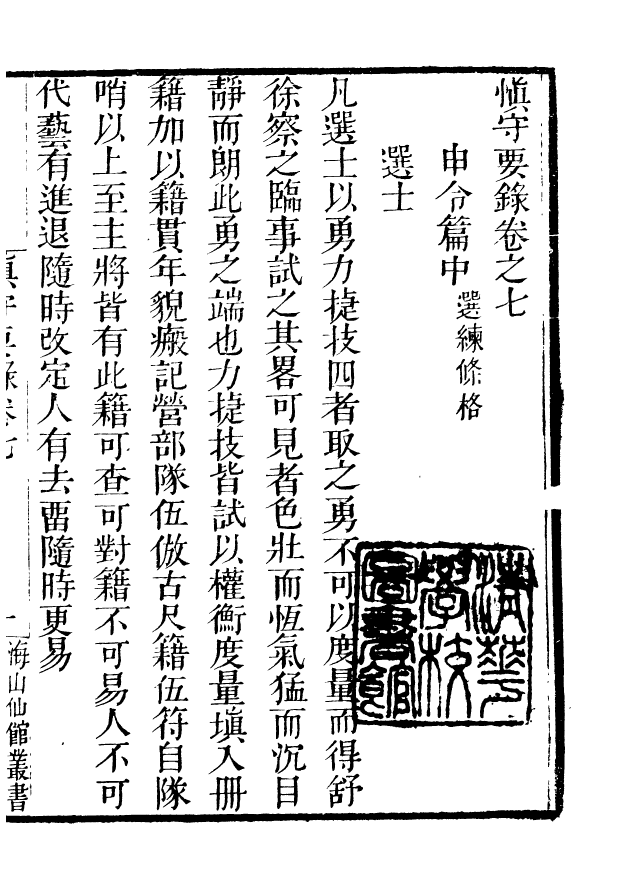 慎守要錄卷之七
申令篇中 選練條格
選士
凡選士以勇力捷技四者取之勇不可以度量而得舒
徐察之臨事試之其畧可見者色壯而恆氣猛而沉目
靜而朗此勇之端也力捷技皆試以權衡度量塡入冊
籍加以籍貫年貌瘢記營部隊伍倣古尺籍伍符自隊
哨以上至主將皆有此籍可查可對籍不可易人不可
代藝有進退隨時改定人有去畱隨時更易
慎守要錄卷七
一
海山仙館叢書
清華
學校
圖書館